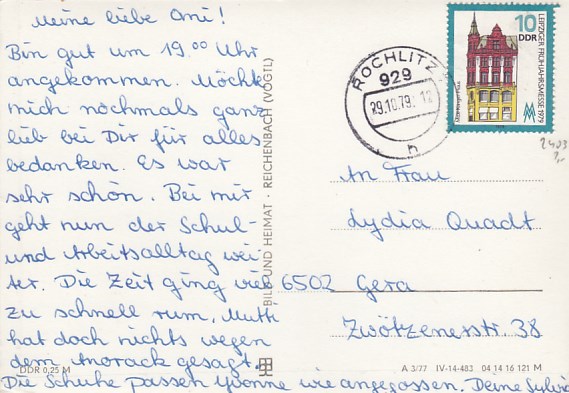 Meine liebe Omi!
Bin gut um 19.00 Uhr
angekommen. Möchte
mich nochmals ganz
lieb bei Dir für alles
bedanken. Es war
sehr schön. Bei mir
geht nun der Schul-
und Arbeitsalltag wei-
ter. Die Zeit ging viel
zu schnell rum. Mutti
hat doch nichts wegen
dem Anorack gesagt.
Die Schuhe passen Yvonne wie angegossen. Deine Sylvia
DDR 0,25 M
BILD UND HEIMAT · REICHENBACH (VOGTL)
ROCHLITZ
929
29.10.79
h
10
DDR
LEIPZIGER FRÜHJAHRSMESSE 1979
2403
An Frau
Lydia Quadt
6502 Gera
Zwötzenerstr. 38
A 3/77 IV-14-483 04 14 16 121 M